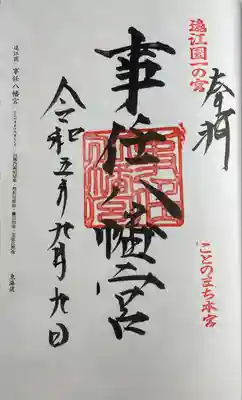 遠江国一の宮
奉拝
ことのまち本宮
事任八幡宮
令和五年九月九日
遠江国 事任八幡宮
東海道